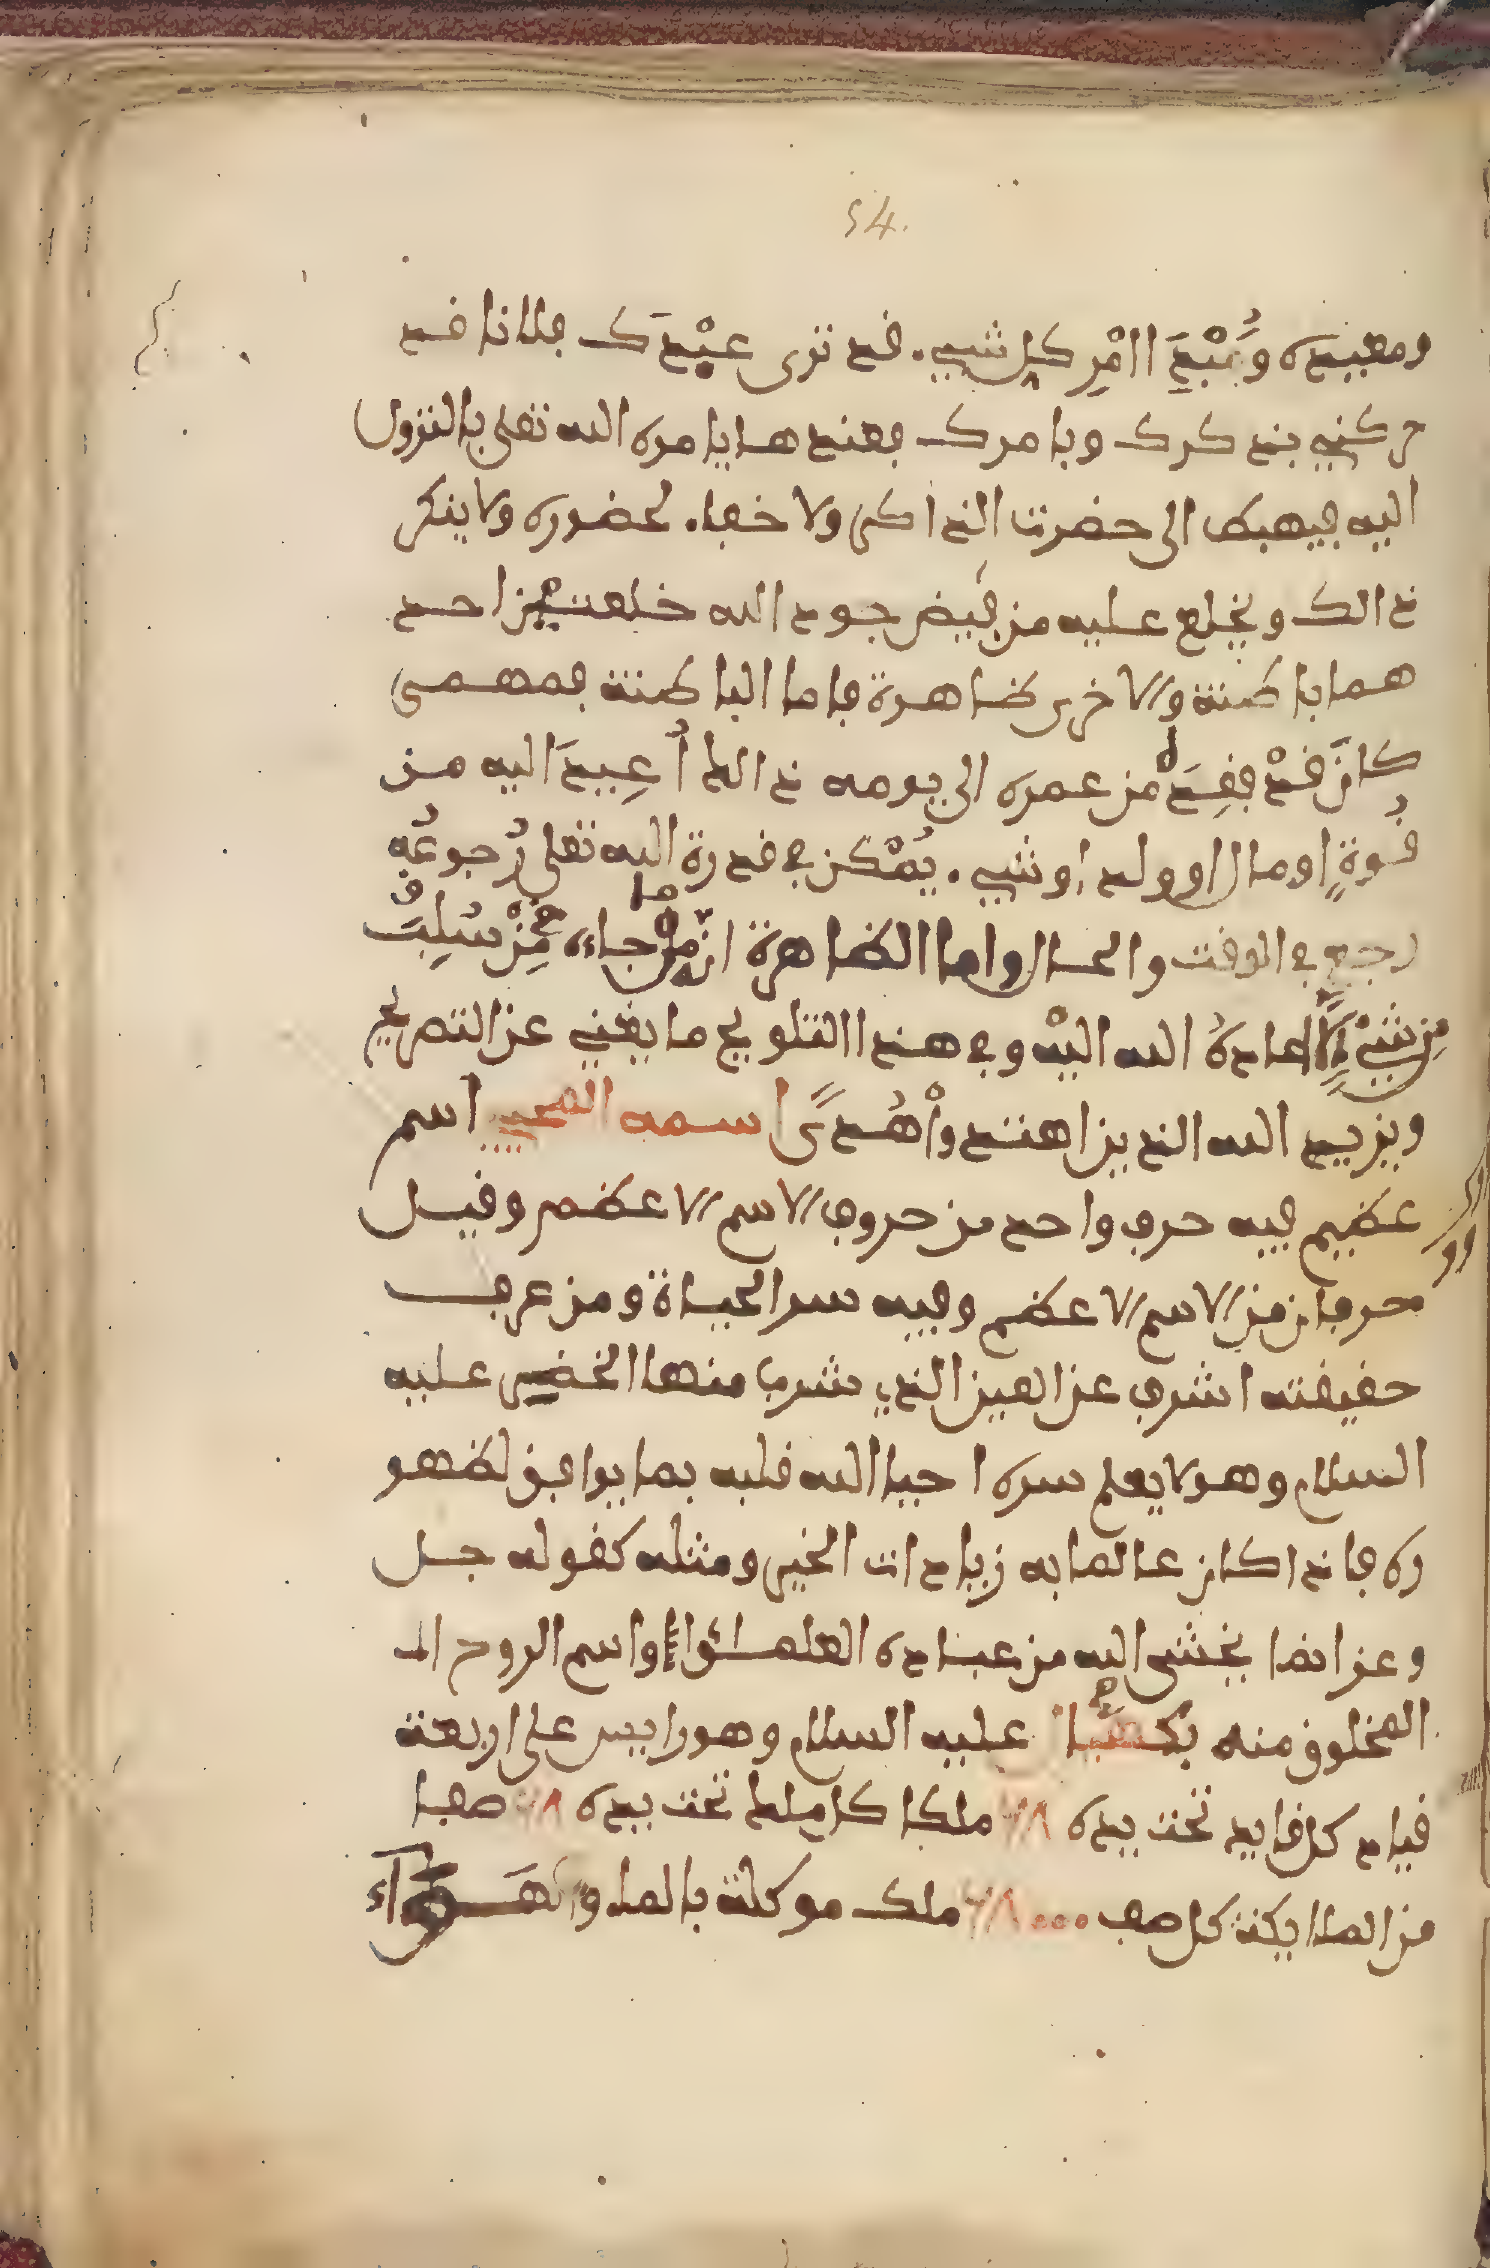 54.
ومعيده وَمُبْدِئَ اامْرِ كل شيء. قد ترى عبْدَك فلانا قد
حركني بذكرك وبامرك فعند هايامره الله تعلى بالنزول
اليه فيهبط الى حضرت الذاكر ولا خفا. لحضوره ولا ينكر
ذالك ويخلع عليه من فيض جود الله خلعتين احد
هما باطنة والاخرى ظاهرة فاما الباطنة فمهمى
كانَ قدْ فقِدَه من عمره الى يومه ذالك أعِيدَ اليه من
قُوةٍ اومال اوولد اوشيء. يُمْكن في قدرة الله تعلى رُجوعُهِ
رجع في الوقت والحال واما الظاهرة انه ما جاءه مِمنْ سُلِبَ
مِن شيْءٍ إلاَّ اعادهُ الله اليْه وفي هذا التلويح ما يغني عن التصريح
ويزيد الله الذين اهتدوْاْ هُدىً اسمه المحيي اسم
عظيم فيه حرف واحد من حروف الاسم الاعظم وقيل
حرفان من الاسم الاعظم وفيه سر الحياة ومن عرف
حقيقته اشرف عن العين الذي شرب منها الخضر عليه
السلام وهولا يعلم سره احيا الله قلبه بما يوافق لظهو
ره فاذاكان عالما به زيادات الخير ومثله كقوله جل
وعز انما يخشى الله من عباده العلمـاؤا واسم الروح الـ
المخلوق منه عليه السلام وهوراييس على اربعة
قياد كل قايد تحت يده ٦٨ ملكا كل ملك تحت يده ٦٨ صفا
من الملايكة كل صف ٦٨٠٠٠ ملك موكلة بالما والهَـوَآء